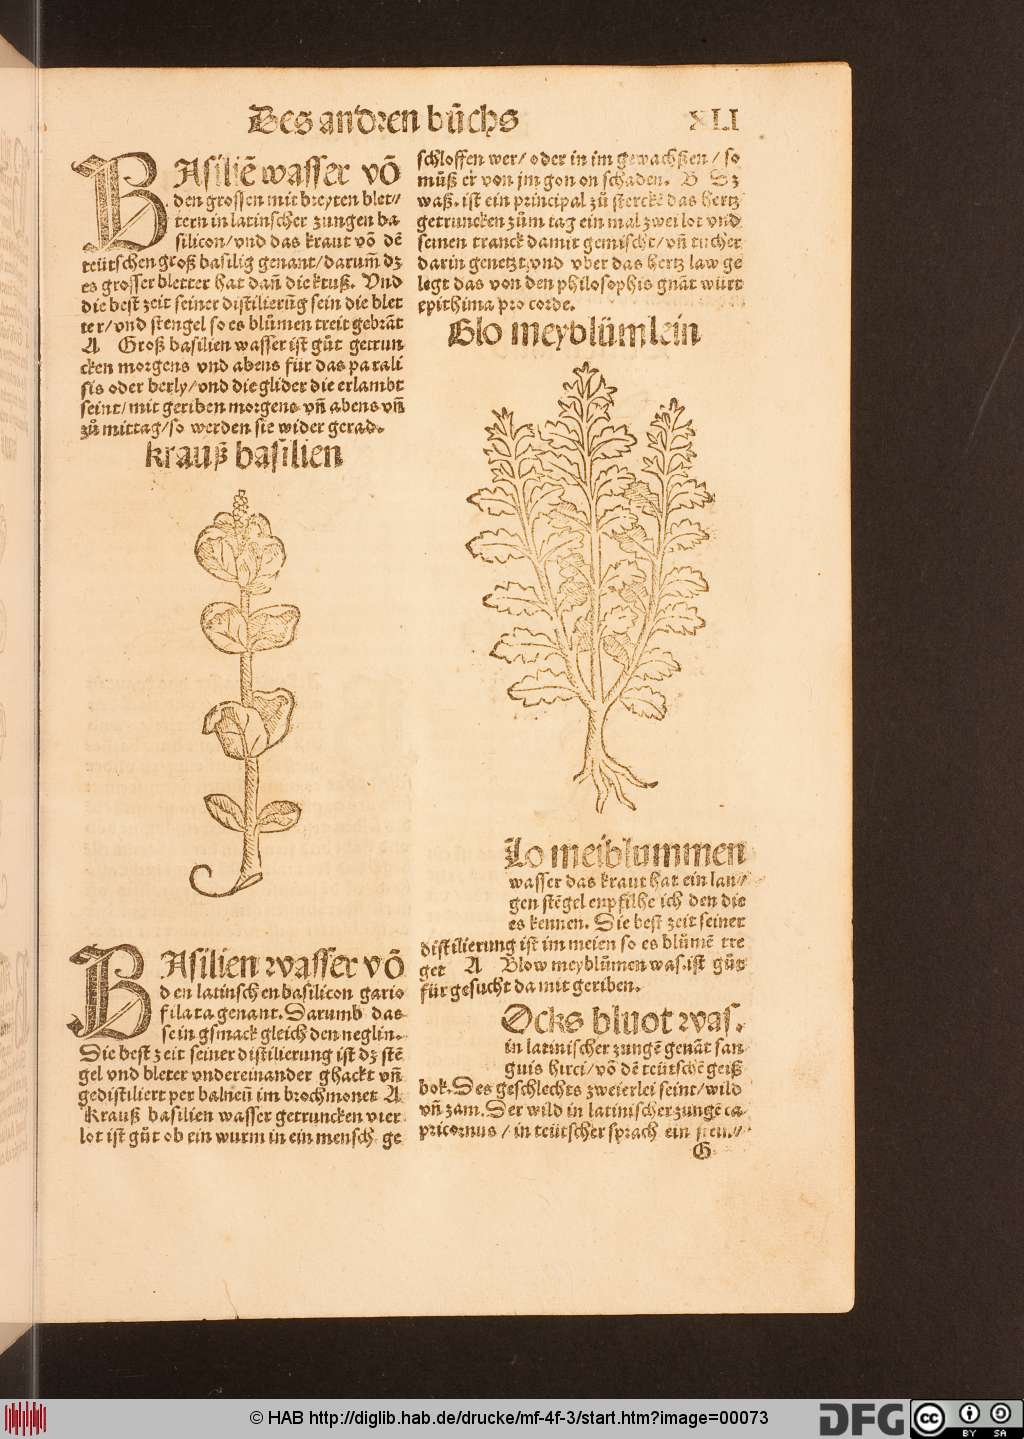 Des andren bůchs
XLI
BAsiliē wasser vō
den grossen mit breyten blet//
tern in latinscher zungen ba-
silicon/vnd das kraut vō dē
teütschen groß basilig genant/darum̄ dz
es grosser bletter hat dañ die kruß. Vnd
die best zeit seiner distilierūg sein die blet
ter/vnd stengel so es blůmen treit gebrāt
A Groß basilien wasser ist gůt getrun
cken morgens vnd abens für das parali
sis oder berly/vnd die glider die erlambt
seint/mit geriben morgens vñ abens vñ
zů mittag/so werden sie wider gerad.
krauß basilien
BAsilien wasser vō
den latinschen basilicon gario
filata genant. Darumb das
sein gsmack gleich den neglin.
Die best zeit seiner distilierung ist dz stē
gel vnd bleter vndereinander ghackt vñ
gedistiliert per balneū im brochmonet A
Krauß basilien wasser getruncken vier
lot ist gůt ob ein wurm in ein mensch ge
schloffen wer/ oder in im gewachßen/ so
můß er von jm gon on schaden. B Dz
waß. ist ein principal zů sterckē das hertz
getruncken zům tag ein mal zwei lot vnd
seinen tranck damit gemischt/vñ tücher
darin genetzt vnd vber das hertz law ge
legt das von den philosophis gnāt würt
epithima pro corde.
Blo meyblümlein
Lo meiblummen
wasser das kraut hat ein lan//
gen stēgel enpfilhe ich den die
es kennen. Die best zeit seiner
distilierung ist im meien so es blůmē tre
get A Blow meyblůmen was. ist gůt
für gesucht da mit geriben.
Ocks bluot was.
in latinischer zungē genāt san
guis hirci/vō dē teütschē geiß
bok. Des geschlechts zweierlei seint/wild
vñ zam. Der wild in latinischer zungē ca
pricornus/in teütscher sprach ein stein//
G
© HAB http://diglib.hab.de/drucke/mf-4f-3/start.htm?image=00073
DFG
cc
BY SA